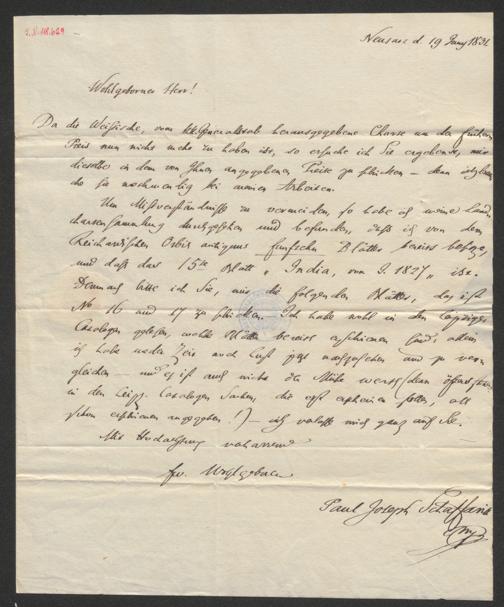 I.N. 118.629
Neusatz d. 19 Juny 1832
Wohlgeborner Herr!
Da die Weißische, vom k.k. Generalstab herausgegebene Charte um den frühern
Preis nun nicht mehr zu haben ist, so ersuche ich Sie ergebenst, mir
dieselbe in dem von Ihnen angegebenen Preise zu schicken — denn ich
sie nothwendig bei meinen Arbeiten.
Um Mißverständnisse zu vermeiden, so habe ich meine Land-
chartensammlung durchgesehen und befunden, daß ich von dem
Reichardischen Orbis antiquus fünfzehn Blätter bereits besitze,
und daß das 15te Blatt „India, vom J. 1827" ist.
Demnach bitte ich Sie, mir die folgenden Blätter, das ist
No 16 und 17 zu schicken. Ich habe wohl in den Leipziger
Catalogen gelesen, welche Blätter bereits erschienen sind, allein
ich habe weder Zeit noch Lust jetzt nachzusehen und zu ver-
gleichen — und es ist auch nicht der Mühe werth (denn öfters
in den Leipz. Catalogen Sachen, die erst erscheinen sollen, als
schon erschienen angegeben!) — ich verlasse mich ganz auf Sie.
Mit Hochachtung verharrend
Ew. Wohlgeboren
Paul Joseph Schaffarik